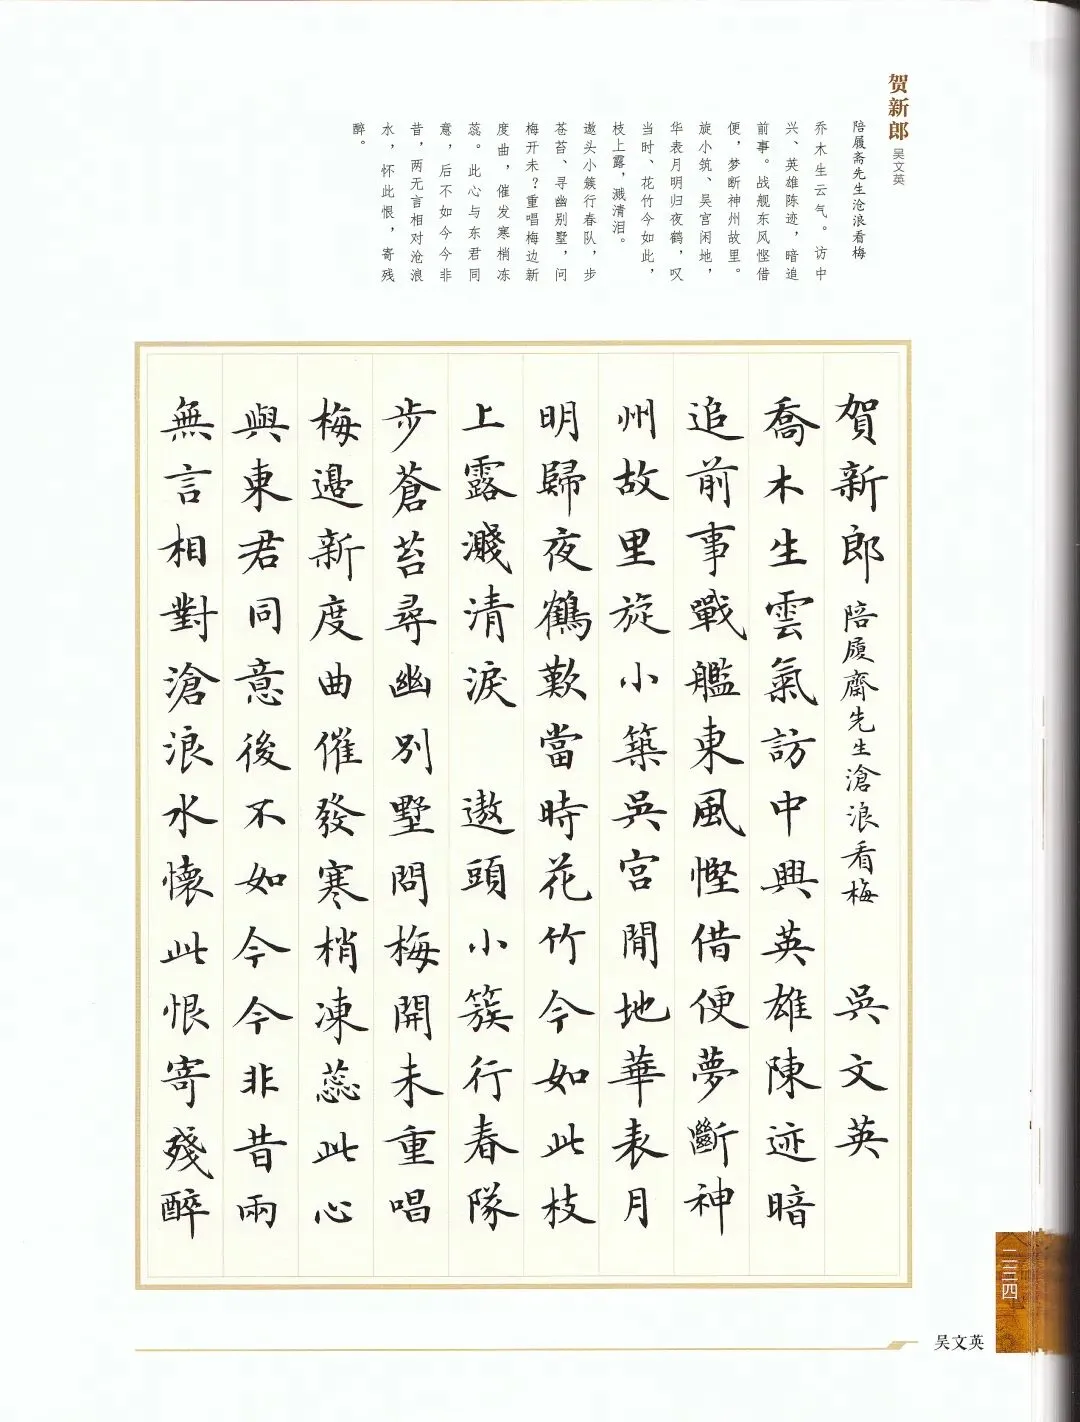 贺新郎 吴文英
陪履斋先生沧浪看梅
乔木生云气。访中
兴、英雄陈迹，暗追
前事。战舰东风悭借
便，梦断神州故里。
旋小筑、吴宫闲地，
华表月明归夜鹤，叹
当时、花竹今如此，
枝上露，溅清泪。
遨头小簇行春队，步
苍苔、寻幽别墅，问
梅开未？重唱梅边新
度曲，催发寒梢冻
蕊。此心与东君同
意，后不如今今非
昔，两无言相对沧浪
水，怀此恨，寄残
醉。
賀新郎 陪履齋先生滄浪看梅 吳文英
喬木生雲氣訪中興英雄陳迹暗
追前事戰艦東風慳借便夢斷神
州故里旋小築吳宮閒地華表月
明歸夜鶴歎當時花竹今如此枝
上露濺清淚 遨頭小簇行春隊
步蒼苔尋幽別墅問梅開未重唱
梅邊新度曲催發寒梢凍蕊此心
與東君同意後不如今今非昔兩
無言相對滄浪水懷此恨寄殘醉
二三四
吴文英